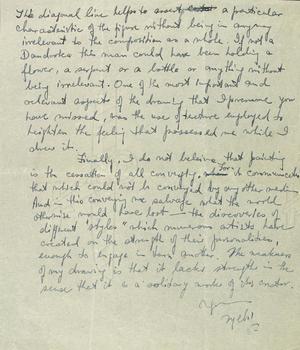 The diagonal line helps to accent a particular
characteristic of the figure without being in anyway
irrelevant to the composition as a whole. If not a
this man could have been holding a
flower, a serpent or a bottle or anything without
being irrelevant. One of the most important and
relevant aspects of the drawing that I presume you
have missed, was the use of texture employed to
heighten the feeling that possessed me while I
drew it.
Finally, I do not believe that painting
is the cessation of all it communicates
that which could not be conveyed by any other medium
And in this conveying we salvage what the world
otherwise would have lost — the discoveries of
different "styles" which numerous artists have
created on the strength of their personalities,
enough to engage in one another. The weakness
of my drawing is that it lacks strength in the
sense that it is a solidary work of its creator.